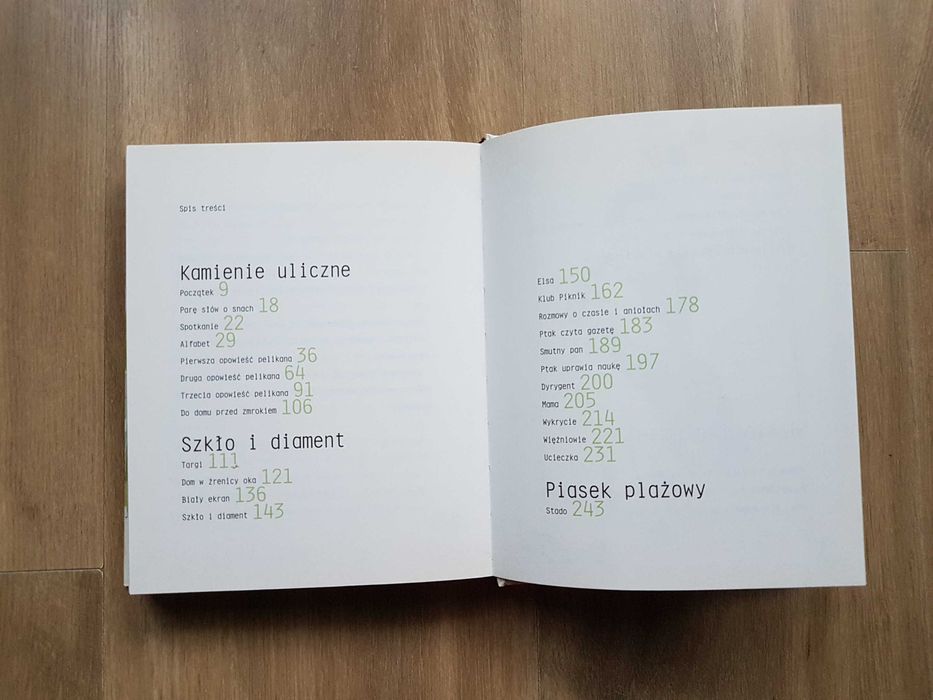 Spis treści
Kamienie uliczne
Początek 9
Parę słów o snach 18
Spotkanie 22
Alfabet 29
Pierwsza opowieść pelikana 36
Druga opowieść pelikana 64
Trzecia opowieść pelikana 91
Do domu przed zmrokiem 106
Szkło i diament
Targi 111
Dom w źrenicy oka 121
Biały ekran 136
Szkło i diament 143
Elsa 150
Klub Piknik 162
Rozmowy o czasie i aniołach 178
Ptak czyta gazetę 183
Smutny pan 189
Ptak uprawia naukę 197
Dyrygent 200
Mama 205
Wykrycie 214
Więźniowie 221
Ucieczka 231
Piasek plażowy
Stado 243